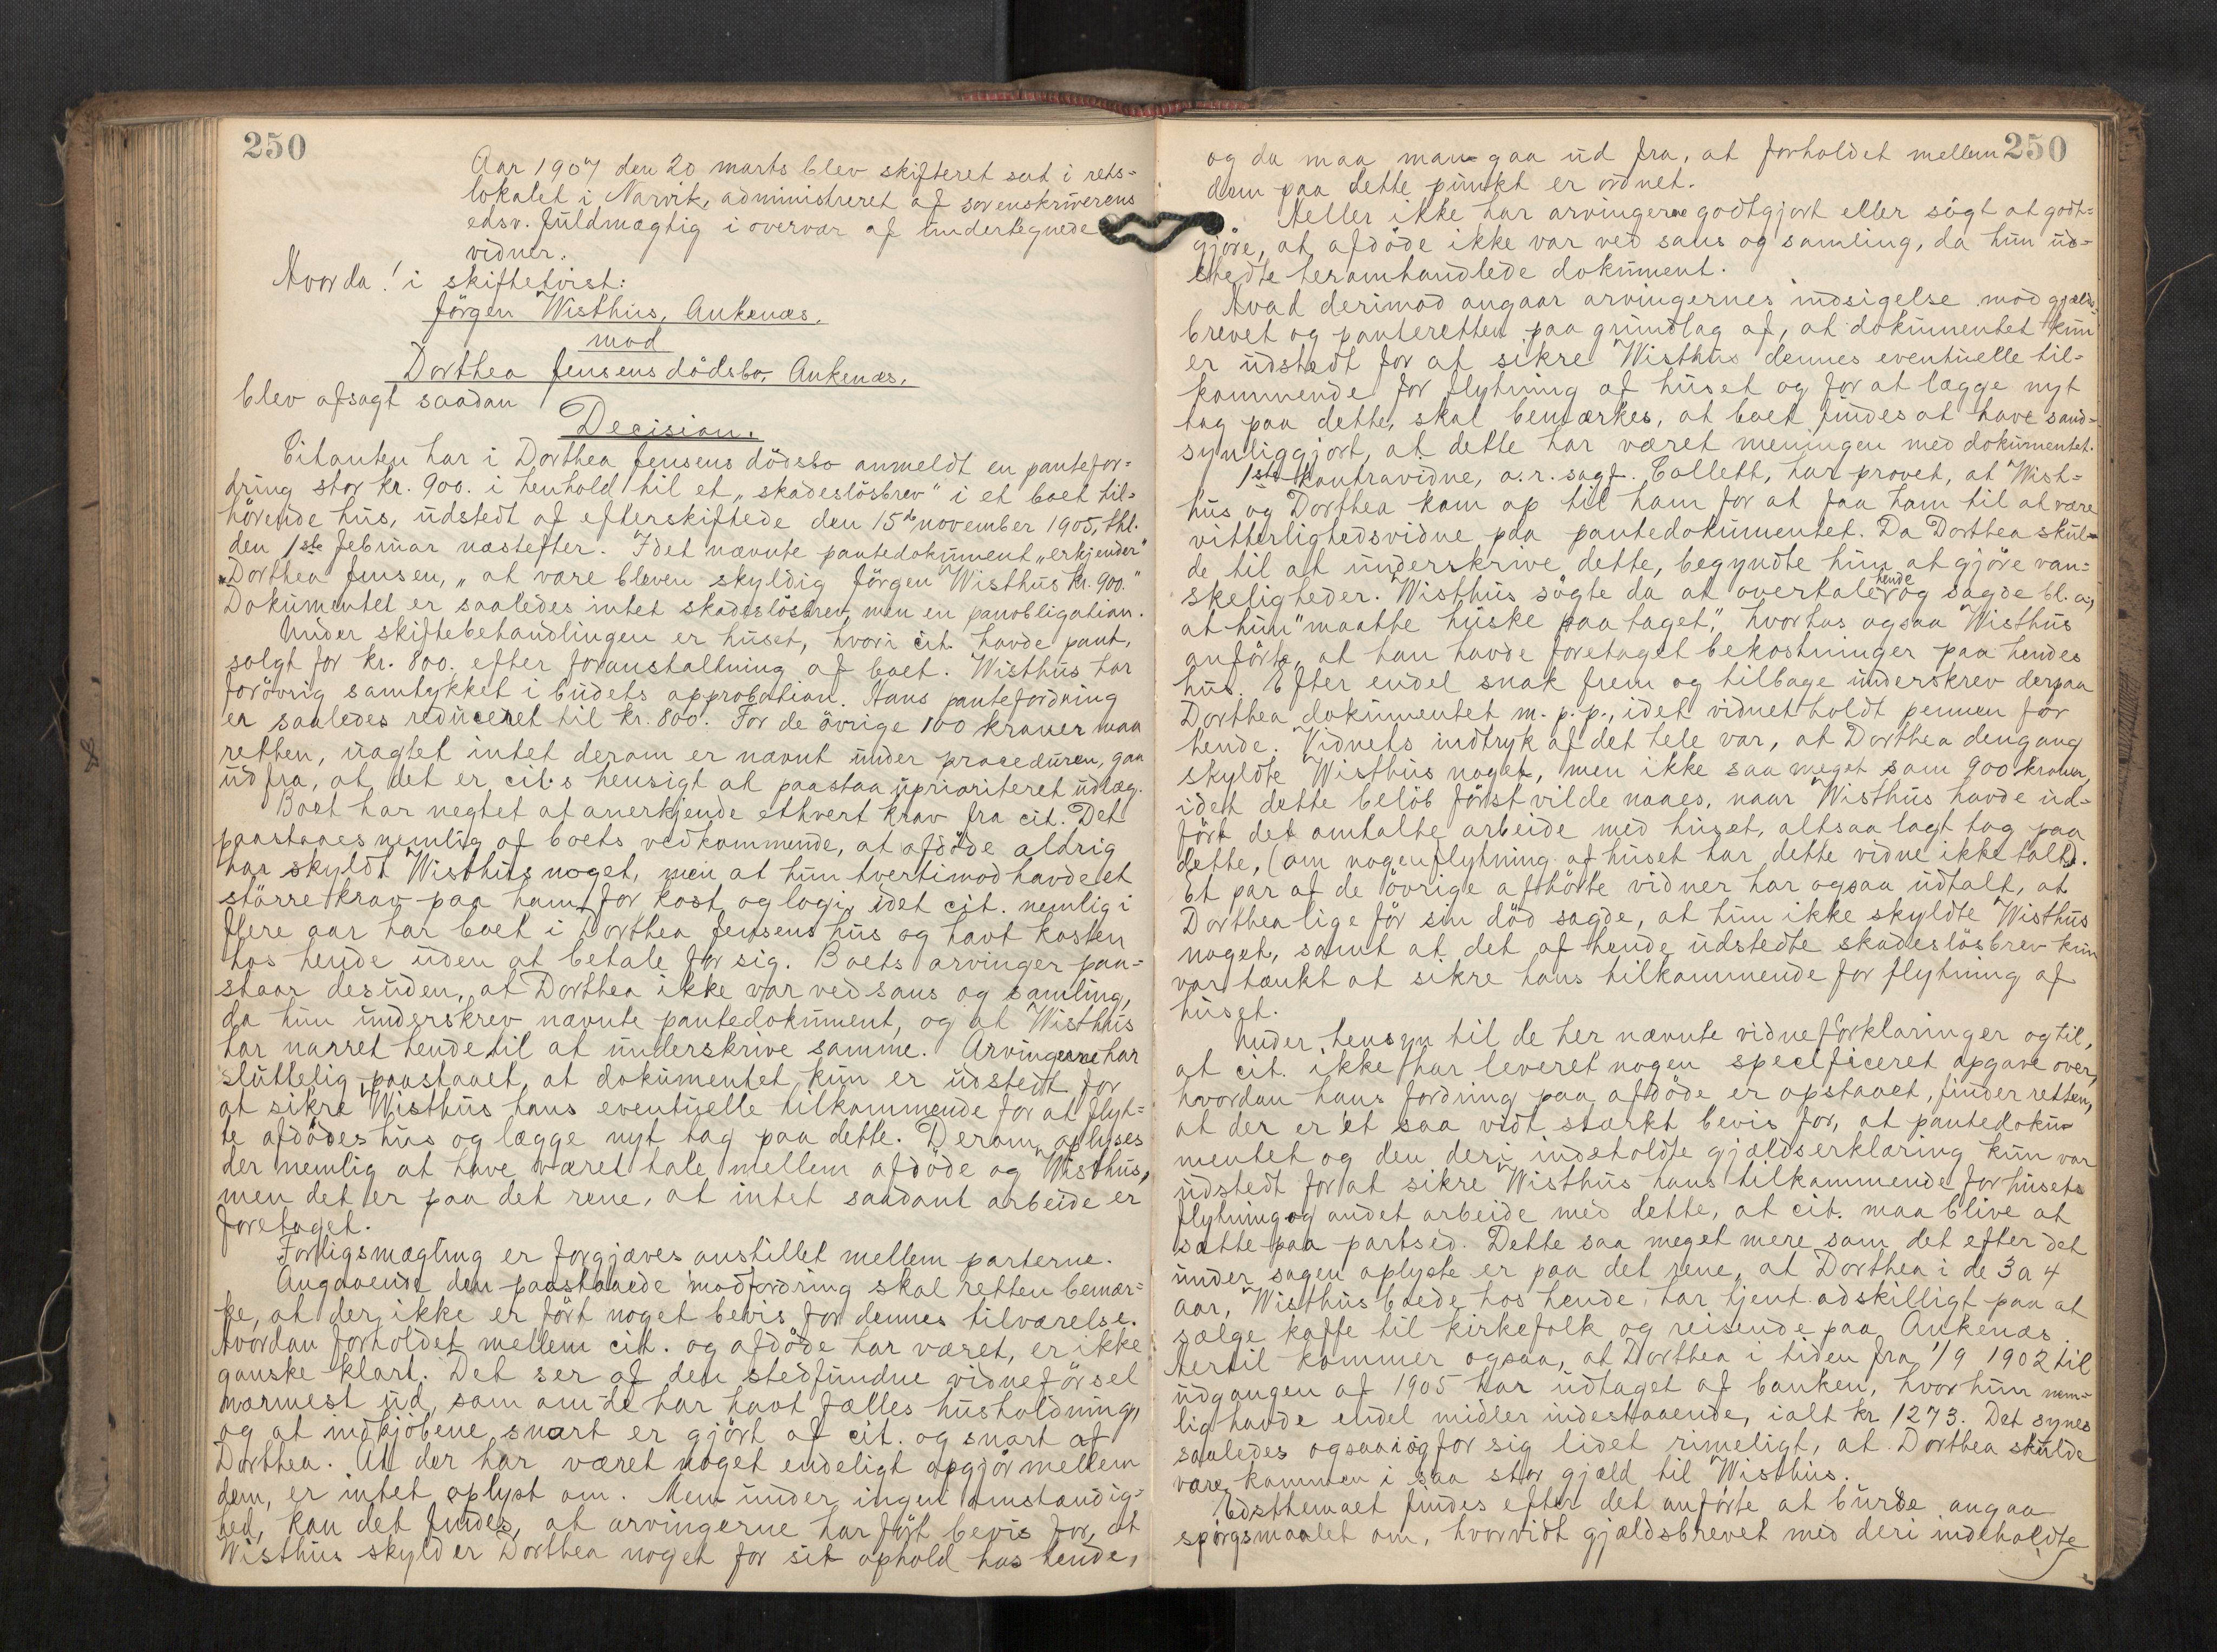 250
Aar 1907 den 20 marts blev skifteret sat i rets-
lokalet i Narvik, administreret af sorenskriverens
edsv. fuldmægtig i overvær af undertegnede
vidner.
Hvorda! i skiftetvist:
Jörgen Wisthus, Ankenæs,
mod
Dorthea Jensens dödsbo, Ankenæs,
blev afsagt saadan
Decision.
Citanten har i Dorthea Jensens dödsbo anmeldt en pantefor-
dring stor kr. 900. i henhold til et „skadeslösbrev" i et boet til-
hörende hus, udstedt af efterskiftede den 15de november 1905, thl.
den 1ste februar næstefter. I det nævnte pantedokument „erkjender"
„Dorthea Jensen, „at være bleven skyldig Jörgen Wisthus kr. 900."
Dokumentet er saaledes intet skadeslösbrev, men en panobligation.
Under skiftebehandlingen er huset, hvori cit. havde pant,
solgt for kr. 800. efter foranstaltning af boet. Wisthus har
forövrig samtykket i budets approbation. Hans pantefordring
er saaledes reduceret til kr. 800. For de övrige 100 kroner maa
retten, uagtet intet derom er nævnt under proceduren, gaa
ud fra, at det er cit.s hensigt at paastaa uprioriteret udlæg.
Boet har negtet at anerkjende ethvert krav fra cit. Det
paastaaes nemlig af boets vedkommende, at afdöde aldrig
har skyldt Wisthus noget, men at hun tvertimod havde et
större krav paa ham for kost og logi, idet cit. nemlig i
flere aar har boet i Dorthea Jensens hus og havt kosten
hos hende uden at betale for sig. Boets arvinger paa-
staar desuden, at Dorthea ikke var ved sans og samling,
da hun underskrev nævnte pantedokument, og at Wisthus
har narret hende til at underskrive samme. Arvingerne har
sluttelig paastaaet, at dokumentet kun er udstedt for
at sikre Wisthus hans eventuelle tilkommende for at flyt-
te afdödes hus og lægge nyt tag paa dette. Derom oplyses
der nemlig at have været tale mellem afdöde og Wisthus,
men det er paa det rene, at intet saadant arbeide er
foretaget.
Forligsmægling er forgjæves anstillet mellem parterne.
Angaaende den paastaaede modfordring skal retten bemær-
ke, at der ikke er fört noget bevis for dennes tilværelse.
Hvordan forholdet mellem cit. og afdöde har været, er ikke
ganske klart. Det ser af den stedfundne vidneförsel
nærmest ud, som om de har havt fælles husholdning,
og at indkjöbene snart er gjört af cit. og snart af
Dorthea. At der har været noget endeligt opgjör mellem
dem, er intet oplyst om. Men under ingen omstændig-
hed, kan det findes, at arvingerne har fört bevis for, at
Wisthus skylder Dorthea noget for sit ophold hos hende,
250
og da maa man gaa ud fra, at forholdet mellem
dem paa dette punkt er ordnet.
Heller ikke har arvingerne godtgjort eller sögt at godt-
gjöre, at afdöde ikke var ved sans og samling, da hun ud-
stedte heromhandlede dokument.
Hvad derimod angaar arvingernes indsigelse mod gjælds-
brevet og panteretten paa grundlag af, at dokumentet kun
er udstedt for at sikre Wisthus dennes eventuelle til-
kommende for flytning af huset og for at lægge nyt
tag paa dette, skal bemærkes, at boet findes at have sand-
synliggjort, at dette har været meningen med dokumentet.
1ste kontravidne, o.r. sagf. Collett, har provet, at Wist-
hus og Dorthea kom op til ham for at faa ham til at være
vitterlighedsvidne paa pantedokumentet. Da Dorthea skul-
de til at underskrive dette, begyndte hun at gjöre van-
skeligheder. Wisthus sögte da at overtale hende og sagde bl. a.,
at hun "maatte huske paa taget", hvorhos ogsaa Wisthus
anförte, at han havde foretaget bekostninger paa hendes
hus. Efter endel snak frem og tilbage underskrev derpaa
Dorthea dokumentet m. p. p., idet vidnet holdt pennen for
hende. Vidnets indtryk af det hele var, at Dorthea dengang
skyldte Wisthus noget, men ikke saa meget som 900 kroner,
idet dette belöb först vilde naaes, naar Wisthus havde ud-
fört det omtalte arbeide med huset, altsaa lagt tag paa
dette, (om nogen flytning af huset har dette vidne ikke talt).
Et par af de övrige afhörte vidner har ogsaa udtalt, at
Dorthea lige för sin död sagde, at hun ikke skyldte Wisthus
noget, samt at det af hende udstedte skadeslösbrev kun
var tænkt at sikre hans tilkommende for flytning af
huset.
Under hensyn til de her nævnte vidneforklaringer og til,
at cit. ikke har leveret nogen specificeret opgave over,
hvordan hans fordring paa afdöde er opstaaet, finder retten,
at der er et saa vidt stærkt bevis for, at pantedoku-
mentet og den deri indeholdte gjældserklæring kun var
udstedt for at sikre Wisthus hans tilkommende for husets
flytning og andet arbeide med dette, at cit. maa blive at
sætte paa partsed. Dette saa meget mere som det efter det
under sagen oplyste er paa det rene, at Dorthea i de 3 a 4
aar, Wisthus boede hos hende, har tjent adskilligt paa at
sælge kaffe til kirkefolk og reisende paa Ankenæs.
Hertil kommer ogsaa, at Dorthea i tiden fra 1/9 1902 til
udgangen af 1905 har udtaget af banken, hvor hun nem-
lig havde endel midler indestaaende, ialt kr 1273. Det synes
saaledes ogsaa i og for sig lidet rimeligt, at Dorthea skulde
være kommen i saa stor gjæld til Wisthus.
Edsthemaet findes efter det anförte at burde angaa
spörgsmaalet om, hvorvidt gjældsbrevet med deri indeholdte